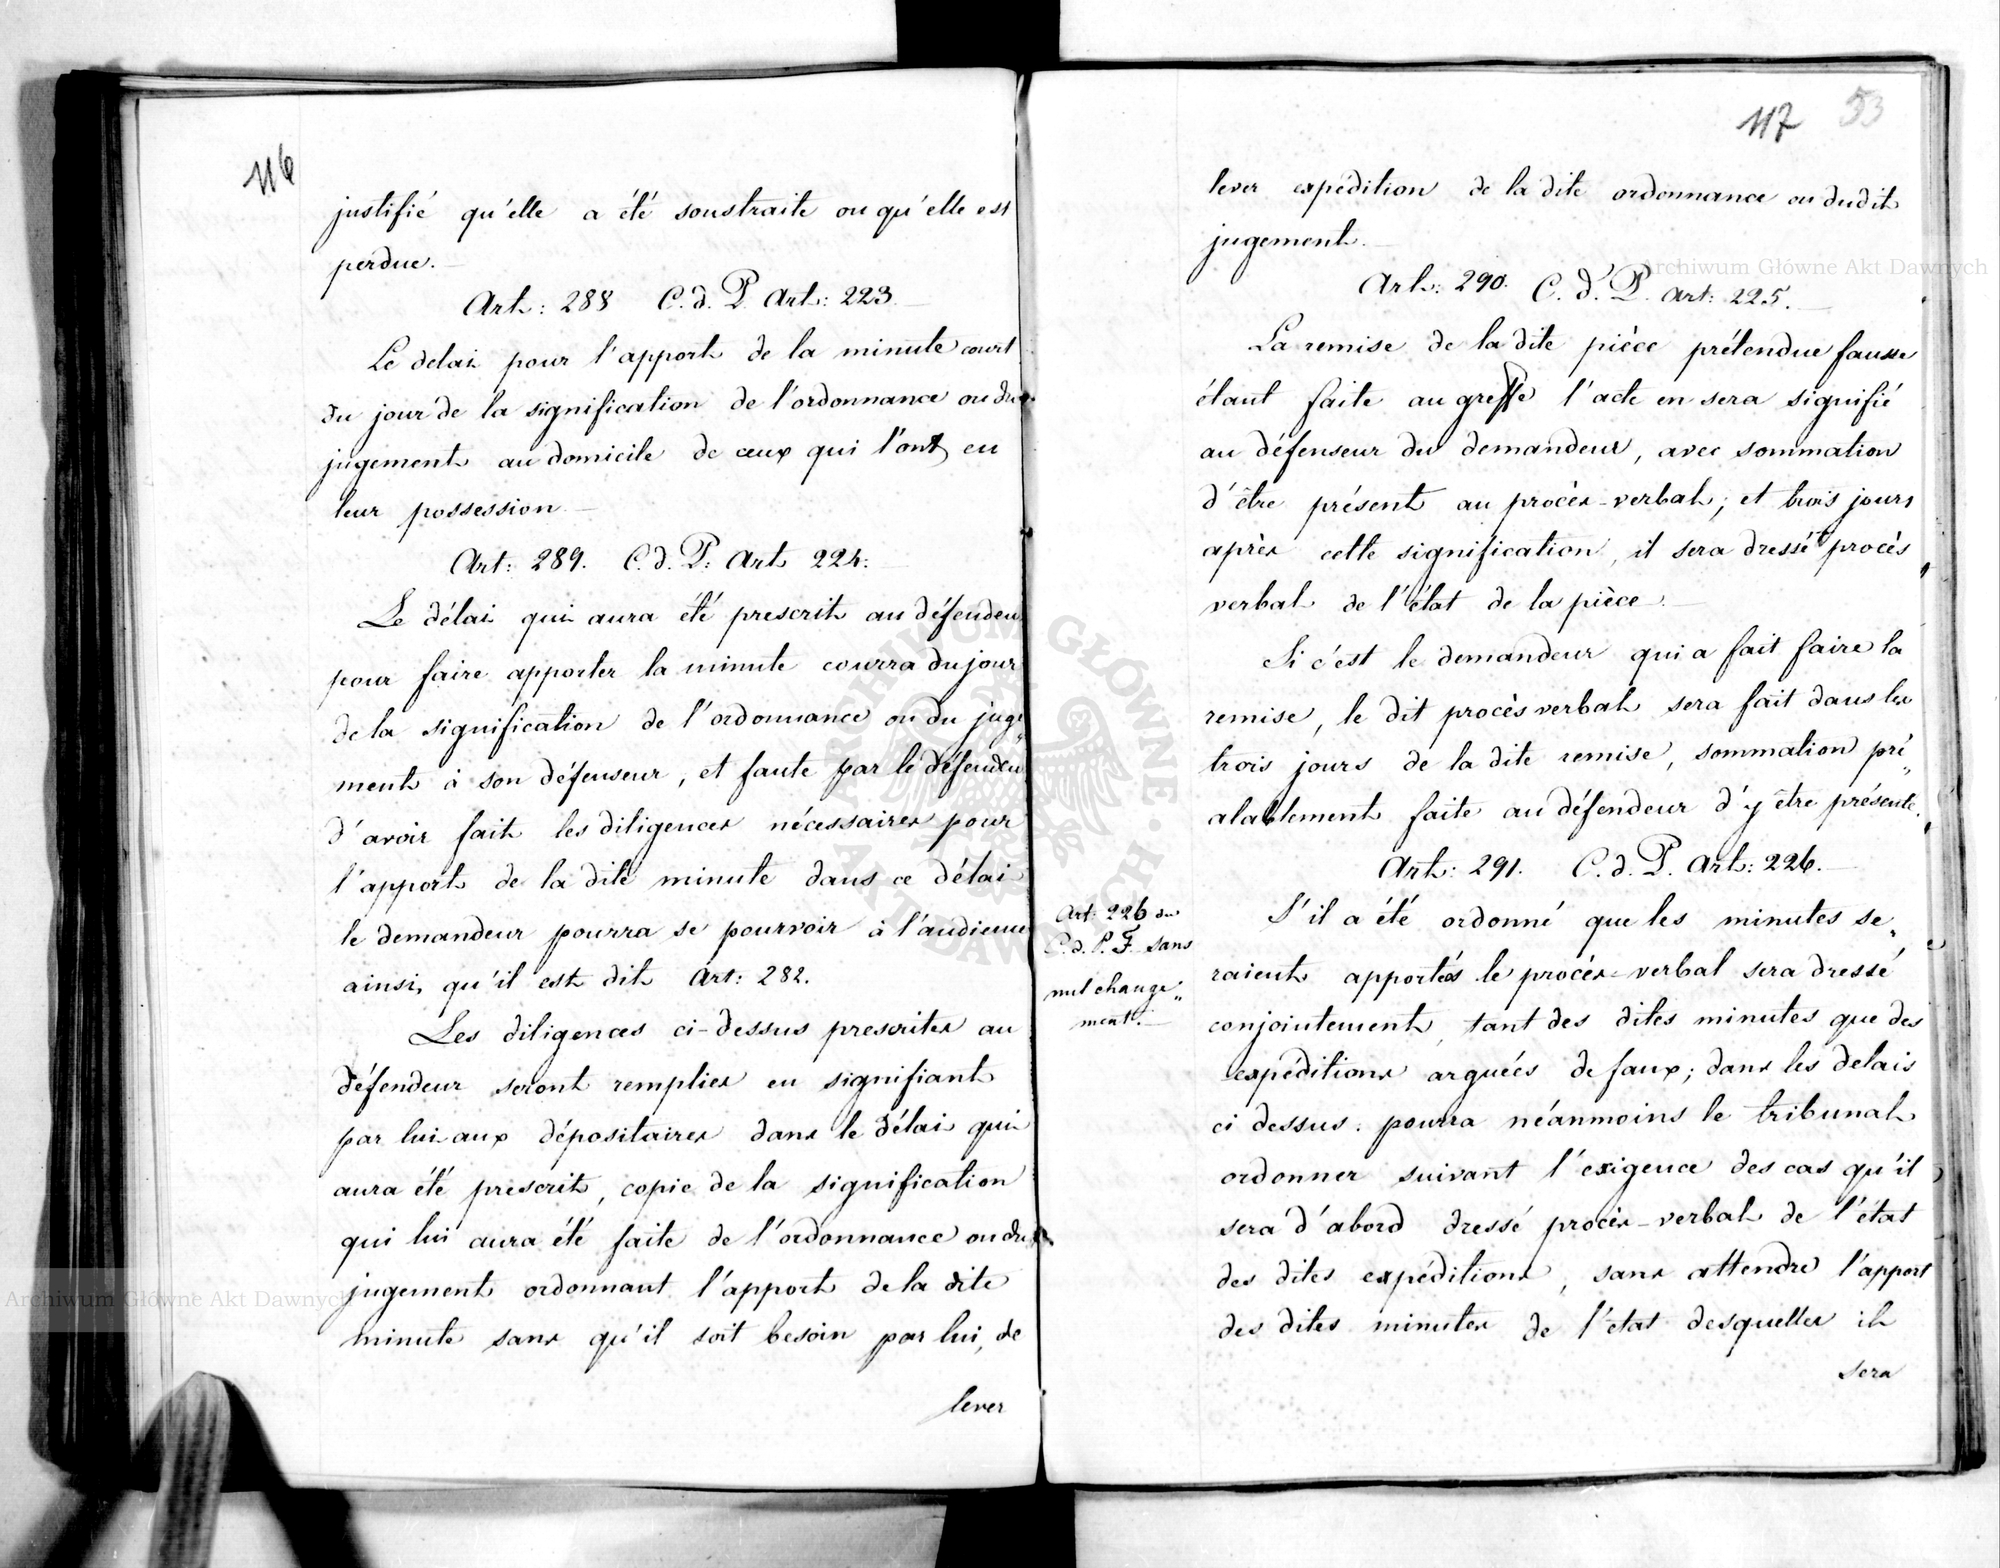 116
justifié qu'elle a été soustraite ou qu'elle est
perdue.
Art: 288 C. d. P. Art: 223
Le delai pour l'apport de la minute court
du jour de la signification de l'ordonnance ou du
jugement au domicile de ceux qui l'ont en
leur possession
Art: 289. C. d. P: Art 224:
Le délai qui aura été prescrit au défendeu
pour faire apporter la minute courra du jour
de la signification de l'ordonnance ou du juge„
ment à son défenseur, et faute par le défendeu
d'avoir fait les diligences nécessaires pour
l'apport de la dite minute dans ce délai
le demandeur pourra se pourvoir à l'audience
ainsi, qu'il est dit Art: 282.
Les diligences ci-dessus prescrites au
défendeur seront remplies en signifiant
par lui aux dépositaires dans le délai qui
aura été prescrit, copie de la signification
qui lui aura été faite de l'ordonnance ou du
jugement ordonnant l'apport de la dite
minute sans qu'il soit besoin par lui, de
lever
117 53
lever expédition de la dite ordonnance ou dudit
jugement.
Art: 290. C. d. P. Art: 225.
La remise de la dite pièce prétendue fausse
étant faite au greffe l'acte en sera signifié
au défenseur du demandeur, avec sommation
d'être présent au procès-verbal; et trois jours
après cette signification, il sera dressé procès
verbal de l'état de la pièce.
Si c'est le demandeur qui a fait faire la
remise, le dit procès verbal sera fait dans les
trois jours de la dite remise, sommation pré„
alablement faite au défendeur d'y être présente.
Art: 291. C. d. P. Art: 226.
Art: 226 du
C. d. P. F. sans
nul change„
ment.
S'il a été ordonné que les minutes se„
raient apportés le procès-verbal sera dressé
conjointement, tant des dites minutes que des
expéditions arguées de faux; dans les delais
ci dessus. pourra néanmoins le tribunal
ordonner suivant l'exigence des cas qu'il
sera d'abord dressé procès-verbal de l'état
des dites expéditions, sans attendre l'apport
des dites minutes de l'état desquelles il
sera
Archiwum Główne Akt Dawnych
Archiwum Główne Akt Dawnych
ARCHIWUM GŁÓWNE AKT DAWNYCH